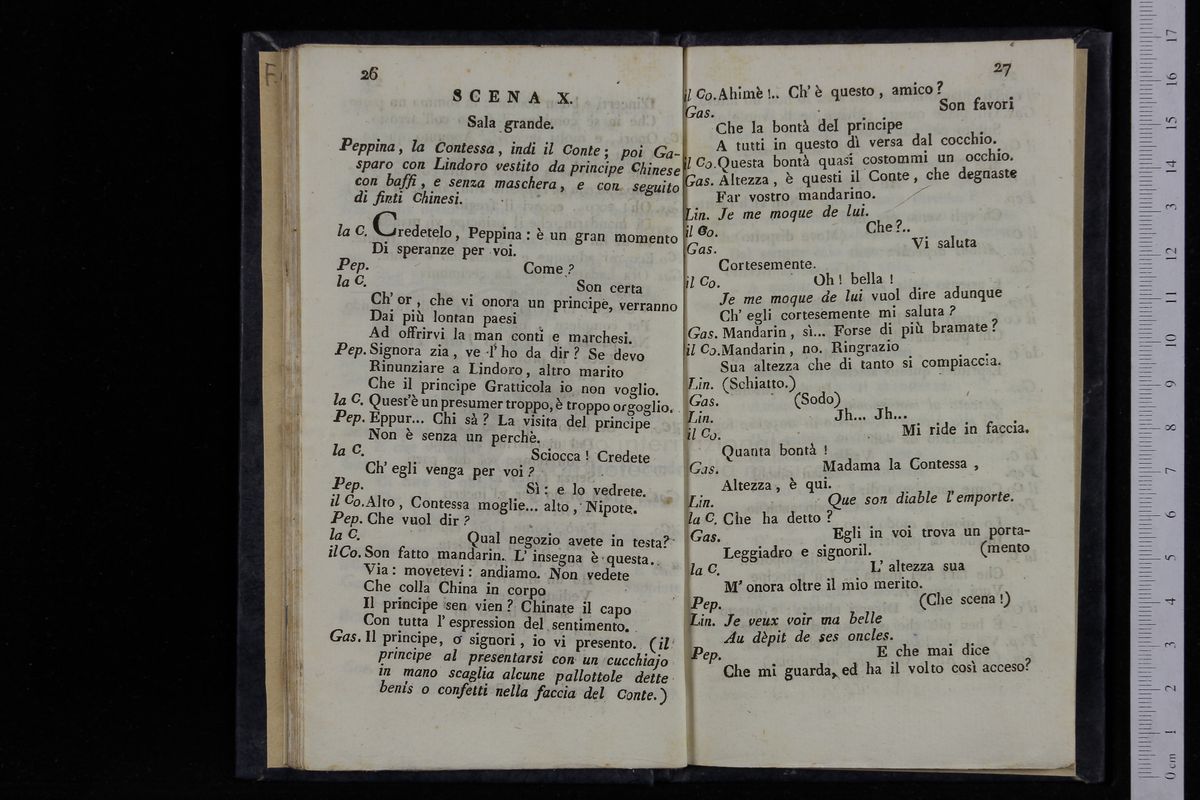 F.
26
SCENA X.
Sala grande.
Peppina, la Contessa, indi il Conte; poi Ga-
sparo con Lindoro vestito da principe Chinese
con baffi, e senza maschera, e con seguito
di finti Chinesi.
la C. Credetelo, Peppina: è un gran momento
Di speranze per voi.
Pep. Come?
la C. Son certa
Ch' or, che vi onora un principe, verranno
Dai più lontan paesi
Ad offrirvi la man conti e marchesi.
Pep. Signora zia, ve l' ho da dir? Se devo
Rinunziare a Lindoro, altro marito
Che il principe Gratticola io non voglio.
la C. Quest'è un presumer troppo, è troppo orgoglio.
Pep. Eppur... Chi sà? La visita del principe
Non è senza un perchè.
la C. Sciocca! Credete
Ch' egli venga per voi?
Pep. Sì: e lo vedrete.
il Co. Alto, Contessa moglie... alto, Nipote.
Pep. Che vuol dir?
la C. Qual negozio avete in testa?
il Co. Son fatto mandarin. L' insegna è questa.
Via: movetevi: andiamo. Non vedete
Che colla China in corpo
Il principe sen vien? Chinate il capo
Con tutta l' espression del sentimento.
Gas. Il principe, o signori, io vi presento. (il
principe al presentarsi con un cucchiajo
in mano scaglia alcune pallottole dette
benis o confetti nella faccia del Conte.)
27
il Co. Ahimè!.. Ch' è questo, amico?
Gas. Son favori
Che la bontà del principe
A tutti in questo dì versa dal cocchio.
il Co. Questa bontà quasi costommi un occhio.
Gas. Altezza, è questi il Conte, che degnaste
Far vostro mandarino.
Lin. Je me moque de lui.
il Co. Che?..
Gas. Vi saluta
Cortesemente.
il Co. Oh! bella!
Je me moque de lui vuol dire adunque
Ch' egli cortesemente mi saluta?
Gas. Mandarin, sì... Forse di più bramate?
il Co. Mandarin, no. Ringrazio
Sua altezza che di tanto si compiaccia.
Lin. (Schiatto.)
Gas. (Sodo)
Lin. Jh... Jh...
il Co. Mi ride in faccia.
Quanta bontà!
Gas. Madama la Contessa,
Altezza, è qui.
Lin. Que son diable l'emporte.
la C. Che ha detto?
Gas. Egli in voi trova un porta-
Leggiadro e signoril. (mento
la C. L' altezza sua
M' onora oltre il mio merito.
Pep. (Che scena!)
Lin. Je veux voir ma belle
Au dèpit de ses oncles.
Pep. E che mai dice
Che mi guarda, ed ha il volto così acceso?
0 cm 1 2 3 4 5 6 7 8 9 10 11 12 13 14 15 16 17